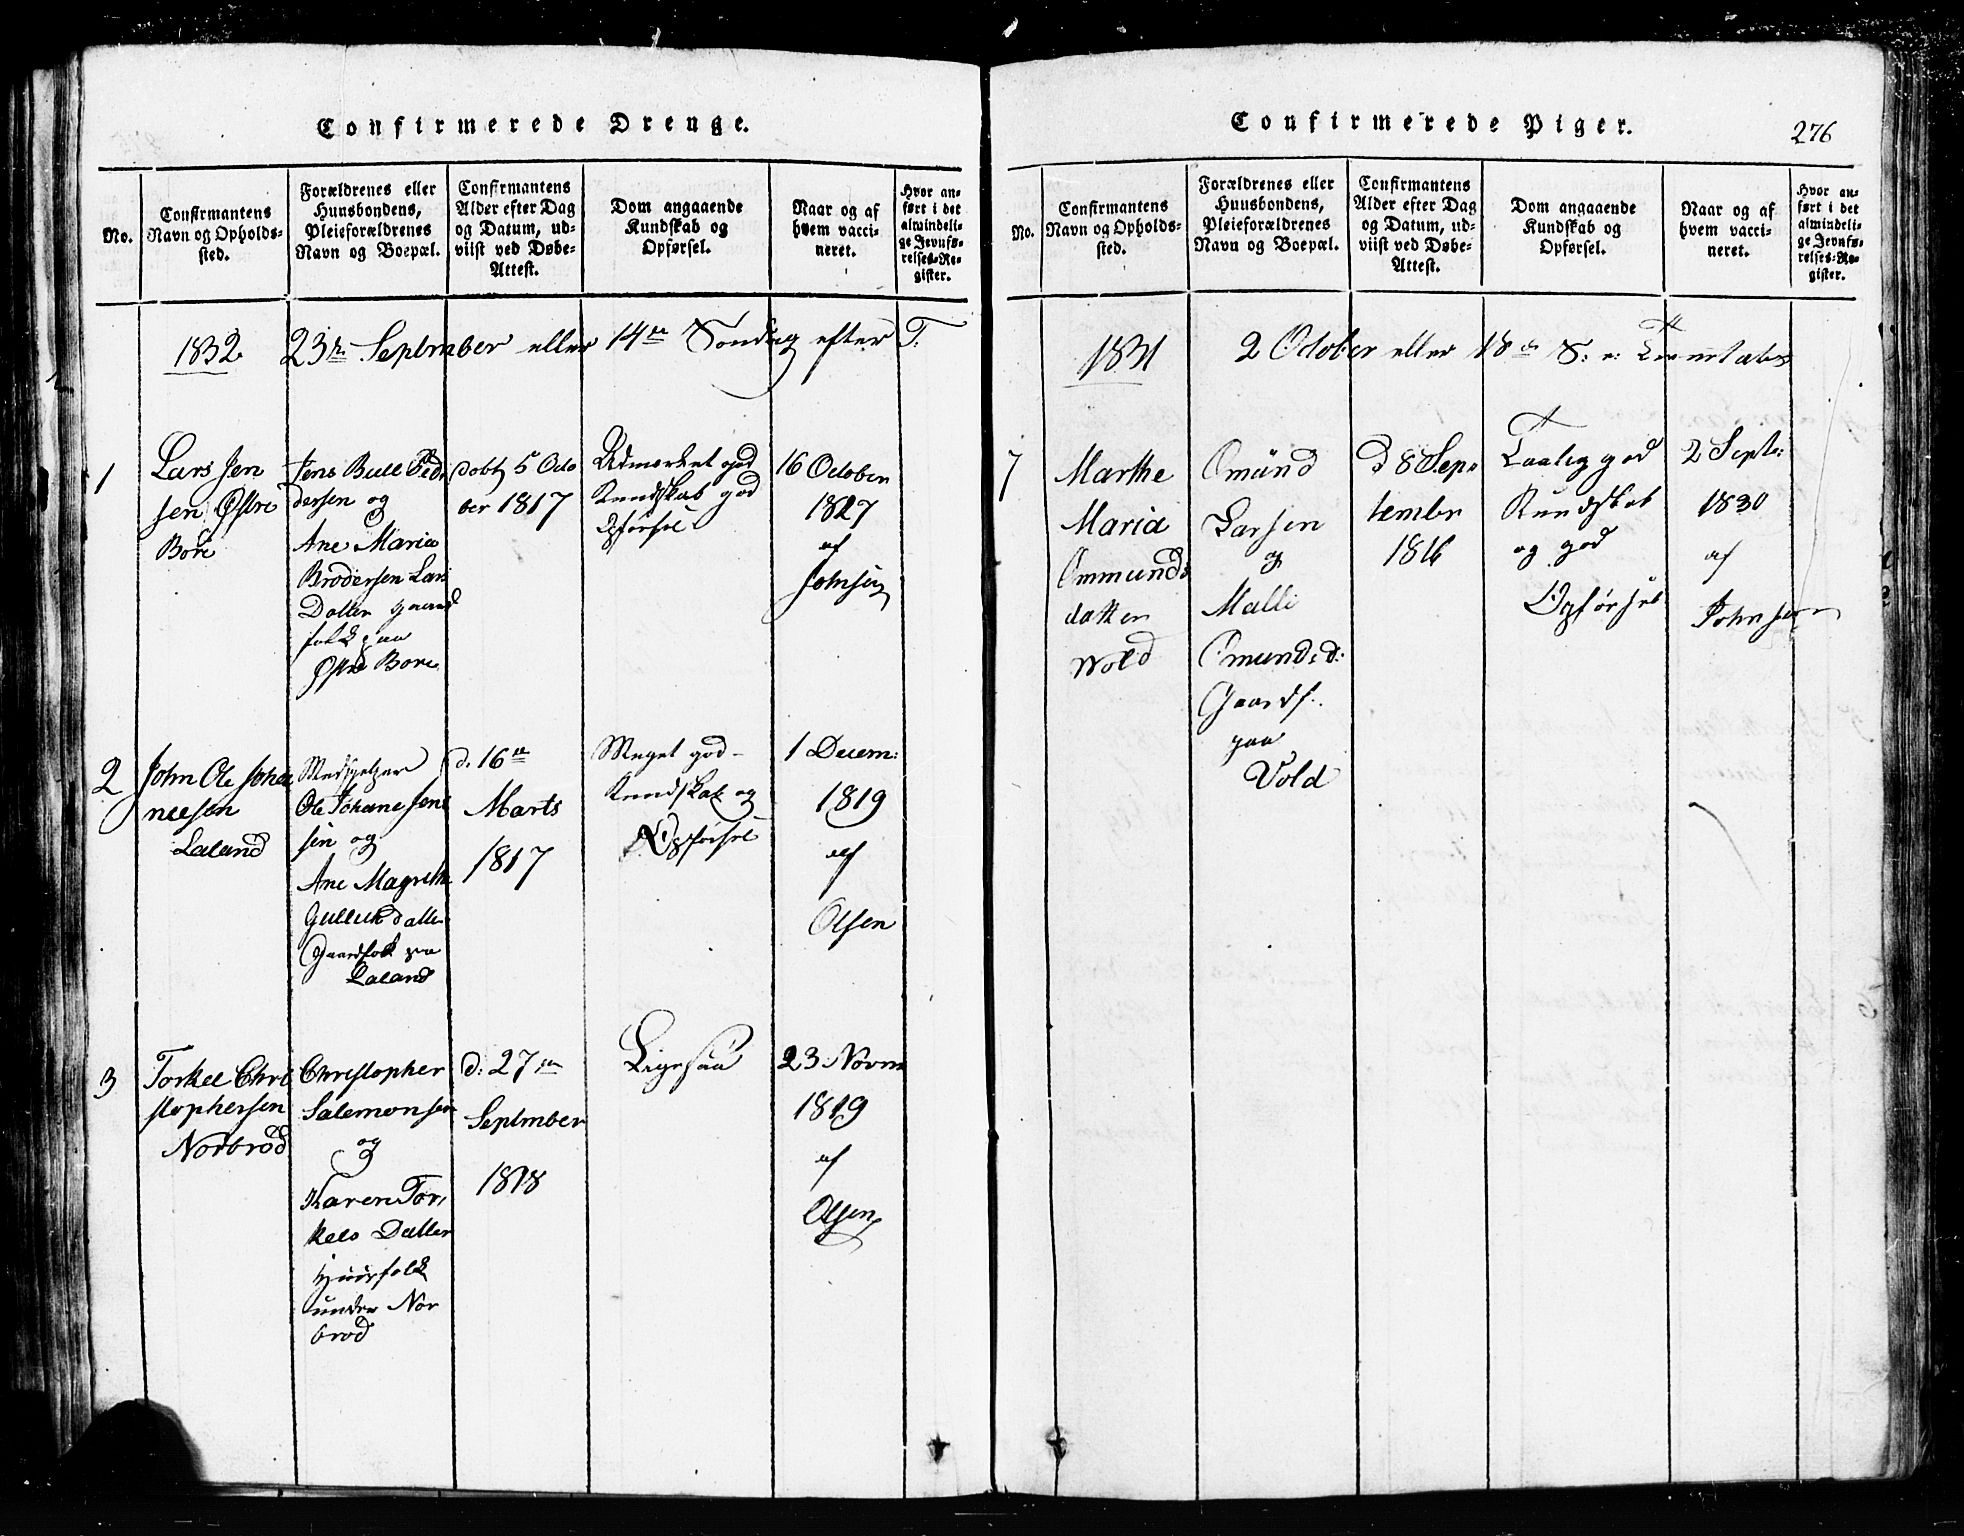 Confirmerede Drenge.
No.
Confirmantens
Navn og Opholds-
sted.
Forældrenes eller
Huusbondens,
Pleieforældrenes
Navn og Boepæl.
Confirmantens
Alder efter Dag
og Datum, ud-
viist ved Døbe-
Attest.
Dom angaaende
Kundskab og
Opførsel.
Naar og af
hvem vacci-
neret.
Hvor an-
ført i det
almindeli-
ge Jevnfø-
relses-Re-
gister.
1832 23de September eller 14de Søndag efter T.
1
Lars Jen
sen Østre
Bore
Jens Bull Ped
dersen og
Ane Maria
Brodersen Lars
Datter Gaard
folk paa
Østre Bore
døbt 5 Octo
ber 1817
Udmærket god
Kundskab god
Opførsel
16 October
1827
af
Johnsen
2
John Ole Joha
neesen
Laland
Ole Johanesen
sen og
Ane Magrethe
Gulliksdatter
Gaardfolk paa
Laland
d. 16de
Marts
1817
Meget god
Kundskab og
Opførsel
1 Decem:
1819
af
Olsen
3
Torkel Chri
stophersen
Norbrod
Christopher
Salemonsen
og
Karen Tor
kels Datter
Huusfolk
under Nor
brod
d: 27de
September
1818
Ligesaa
23 Novm
1819
af
Olsen
Confirmerede Piger.
276
No.
Confirmantens
Navn og Opholds-
sted.
Forældrenes eller
Huusbondens,
Pleieforældrenes
Navn og Boepæl.
Confirmantens
Alder efter Dag
og Datum, ud-
viist ved Døbe-
Attest.
Dom angaaende
Kundskab og
Opførsel.
Naar og af
hvem vacci-
neret.
Hvor an-
ført i det
almindeli-
ge Jevnfø-
relses-Re-
gister.
1831 2 October eller 18de S: e: Trinitatis
7
Marthe
Maria
Ommunds
datter
Wold
Omünd
Larsen
og
Malli
Omundsd:
Gaardf.
paa
Vold
d 8 Sep
tember
1816
Taalig god
Kundskab
og god
Opførsel
2 Septr:
1830
af
Johnsen